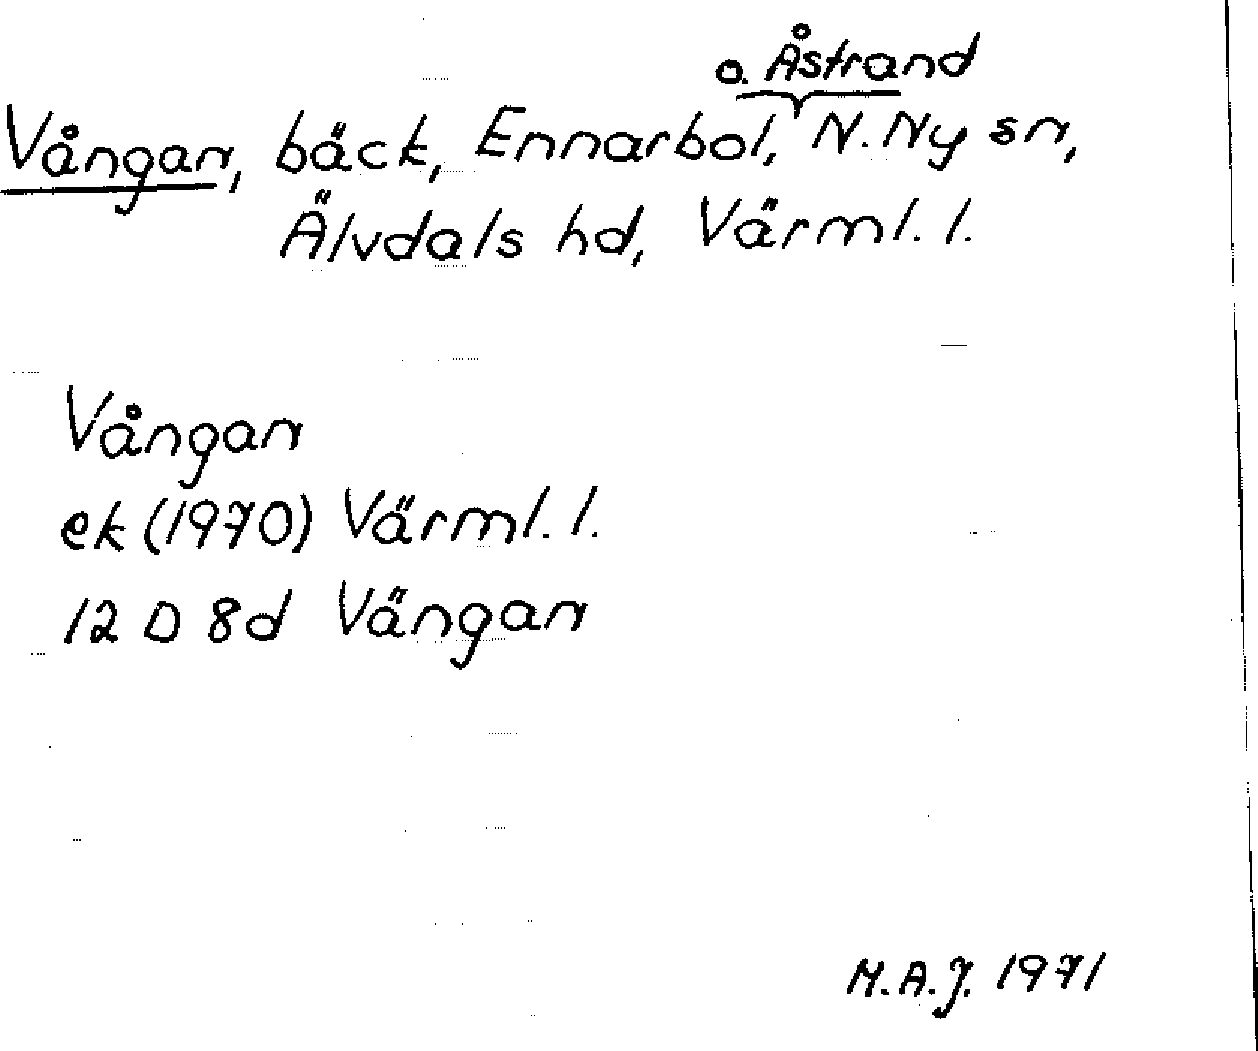 o. Åstrand
Vångan, bäck, Ennarbol, N. Ny sn,
Älvdals hd, Värml. l.
Vångan
ek (1970) Värml. l.
12 D 8d Vängan
M.A.J. 1971